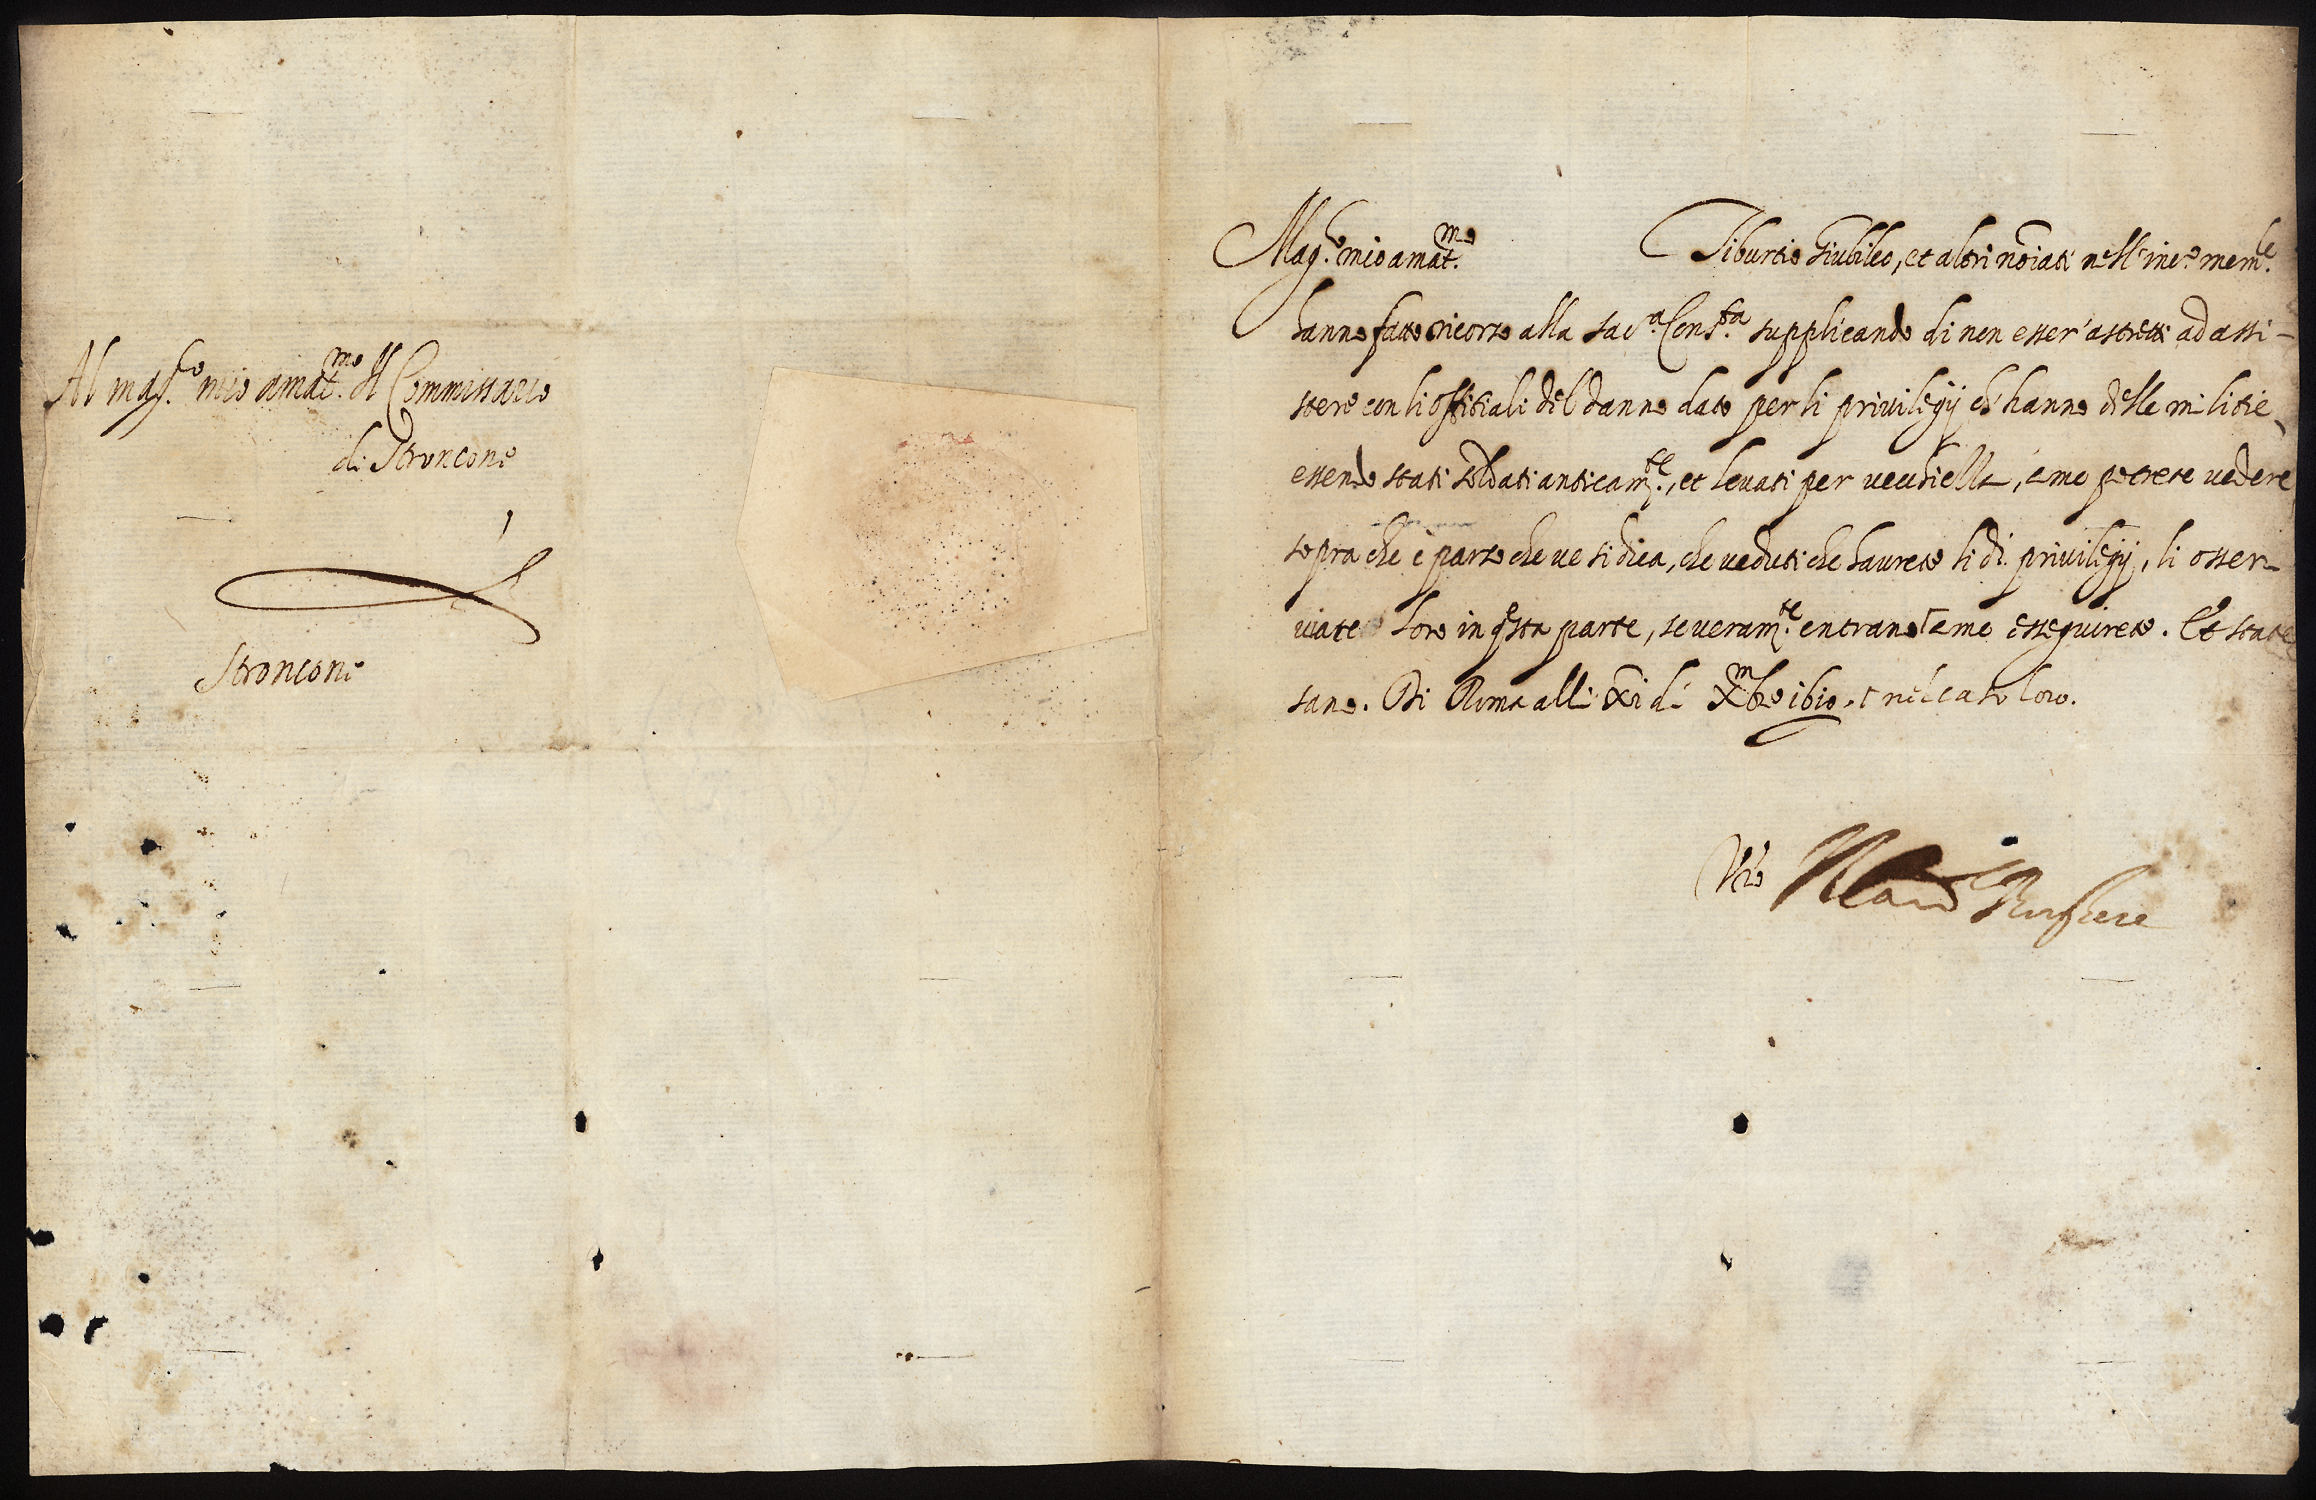 Al mag.co mio amat.mo Il Commissario
di Stroncone
Stroncone
Mag.co mio amat.mo Tiburtio Giubileo, et altri noiati nell'inc.o mem.le
hanno fatto ricorso alla sac.a Cons.ta supplicando di non esser' astretti ad assi-
stere con li offitiali del danno dato per li privilegij ch' hanno delle militie,
essendo stati soldati anticam.te, et levati per vecchiezza, come potrete vedere
sopra che è parso che ve si dica, che veduti che havrete li d.i privilegij, li osser-
viate loro in q.sta parte, se veram.te entrano come esseguirete. Et state
sano. Di Roma alli xi di Xmbre 1610. nel caso loro.
Vro